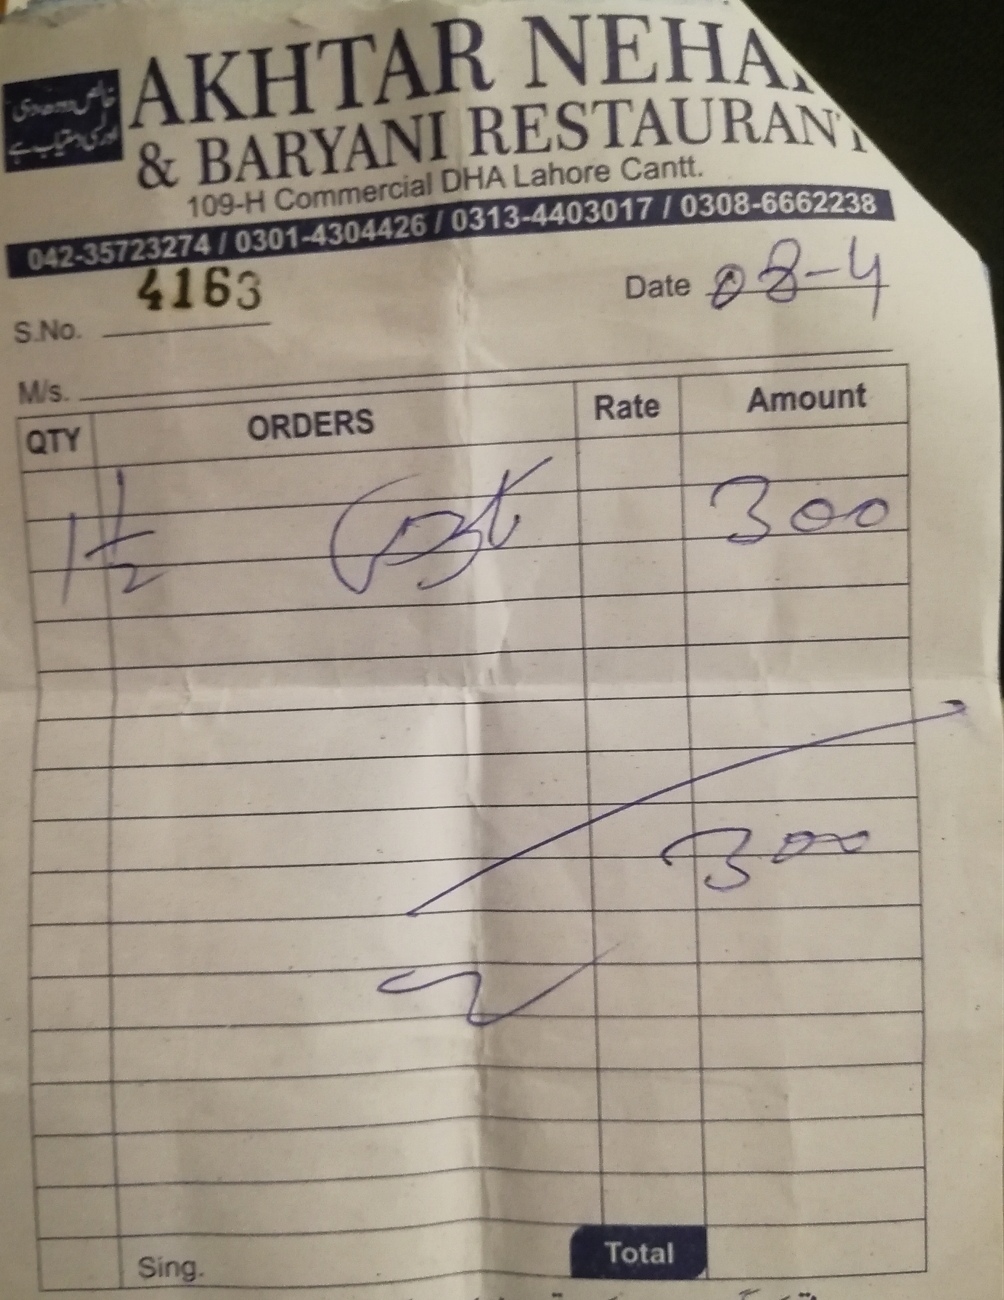 AKHTAR NEHA
& BARYANI RESTAURANT
109-H Commercial DHA Lahore Cantt.
042-35723274 / 0301-4304426 / 0313-4403017 / 0308-6662238
4163
S.No.
Date 08-4
M/s.
QTY ORDERS Rate Amount
1 1/2 300
300
Sing. Total